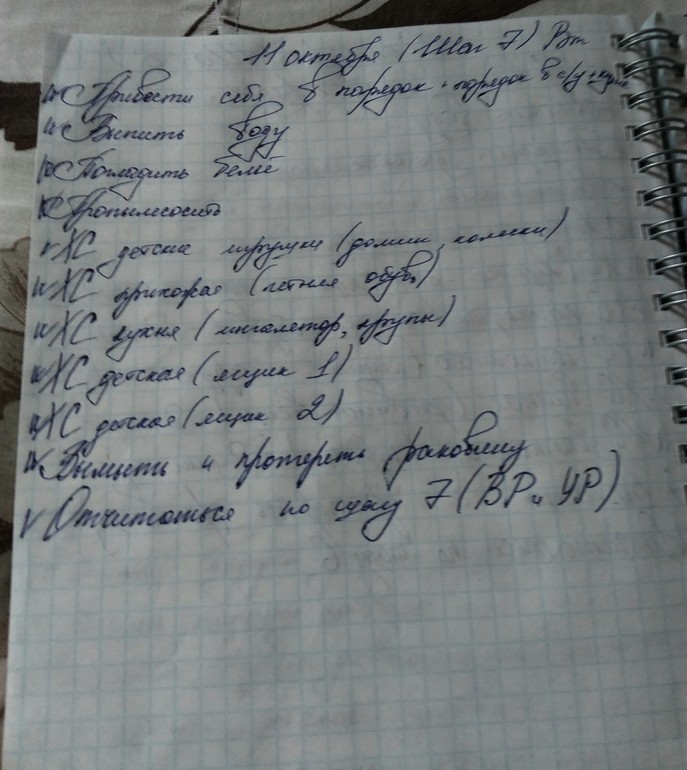 11 октября (Шаг 7) Вт
Привести себя в порядок + порядок в с/у + кухне
Выпить воду
Погладить бельё
Пропылесосить
ХС детские игрушки (домик, коляски)
ХС прихожая (летняя обувь)
ХС кухня (ингалятор, крупы)
ХС детская (ящик 1)
ХС детская (ящик 2)
Вымыть и протереть раковину
Отчитаться по шагу 7 (ВР и УР)